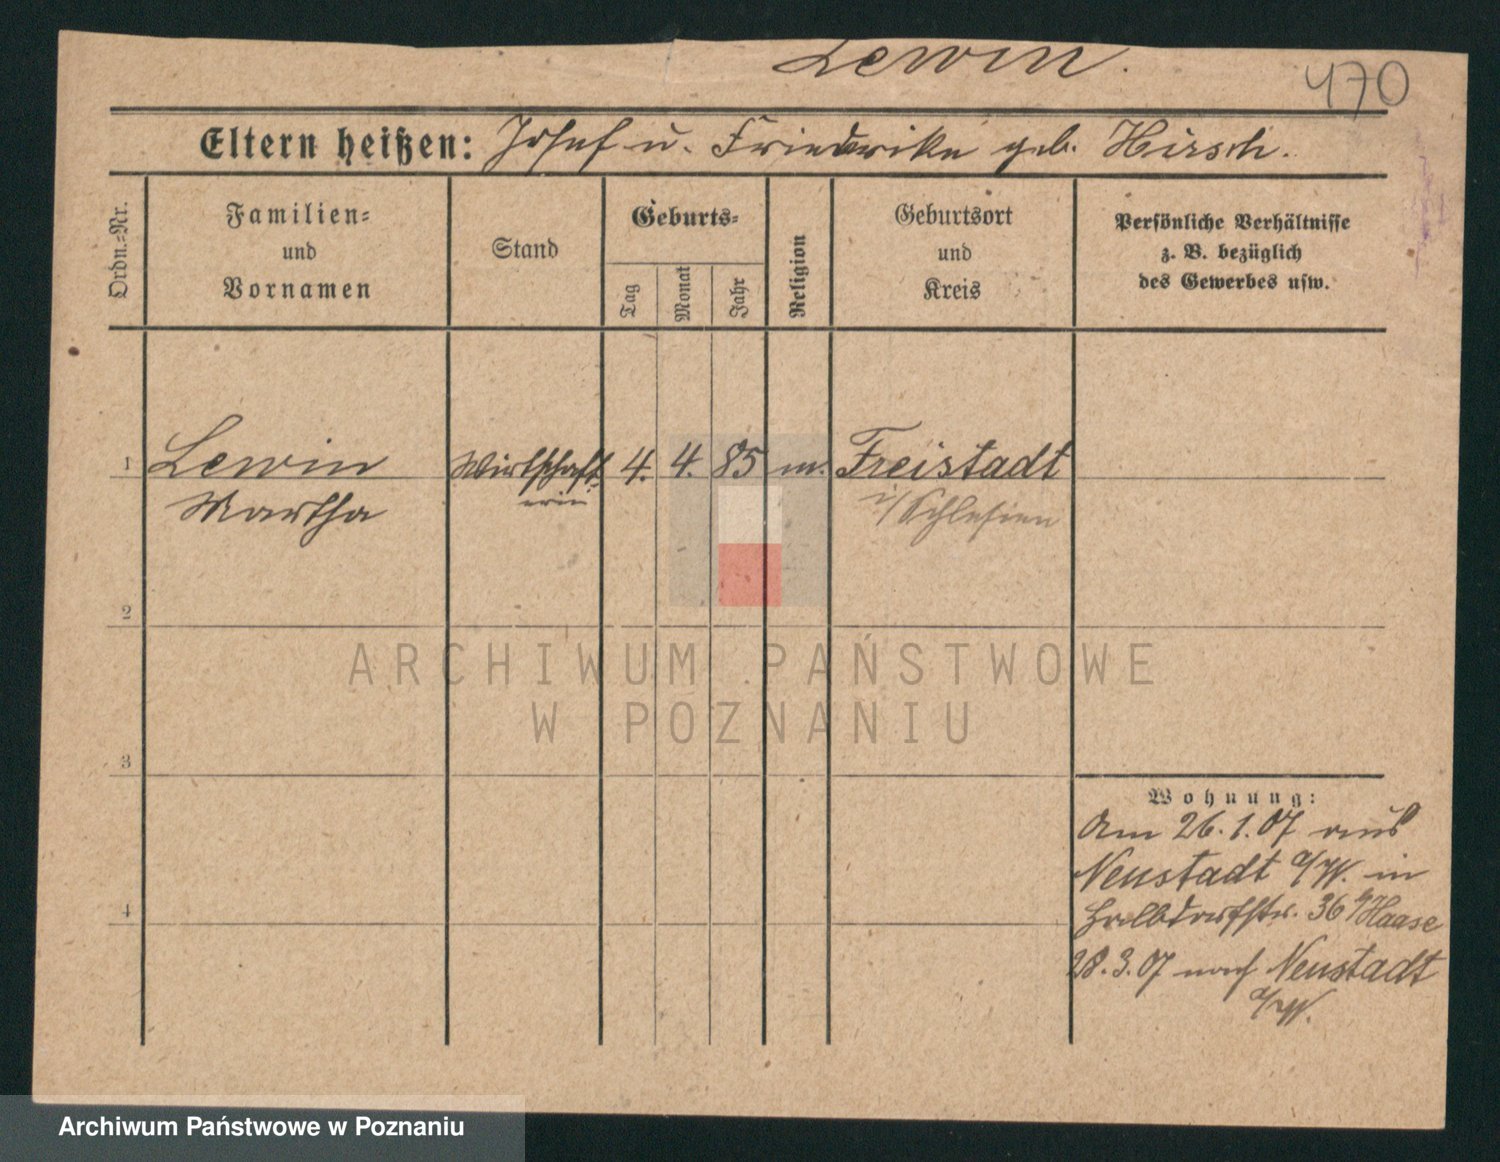 Lewin.
470
Eltern heißen: Josef u. Friederike geb. Hirsch.
Ordn.=Nr.
Familien=
und
Vornamen
Stand
Geburts=
Tag
Monat
Jahr
Religion
Geburtsort
und
Kreis
Persönliche Verhältnisse
z. B. bezüglich
des Gewerbes usw.
1 Lewin Wirtschaft= 4. 4. 85 m. Freistadt
Martha erin i/Schlesien
2
3
4
Wohnung:
Am 26.1.07 aus
Neustadt a/W. in
Halbdorfstr. 36 b/Haase
28.3.07 nach Neustadt
a/W.
ARCHIWUM PAŃSTWOWE
W POZNANIU
Archiwum Państwowe w Poznaniu